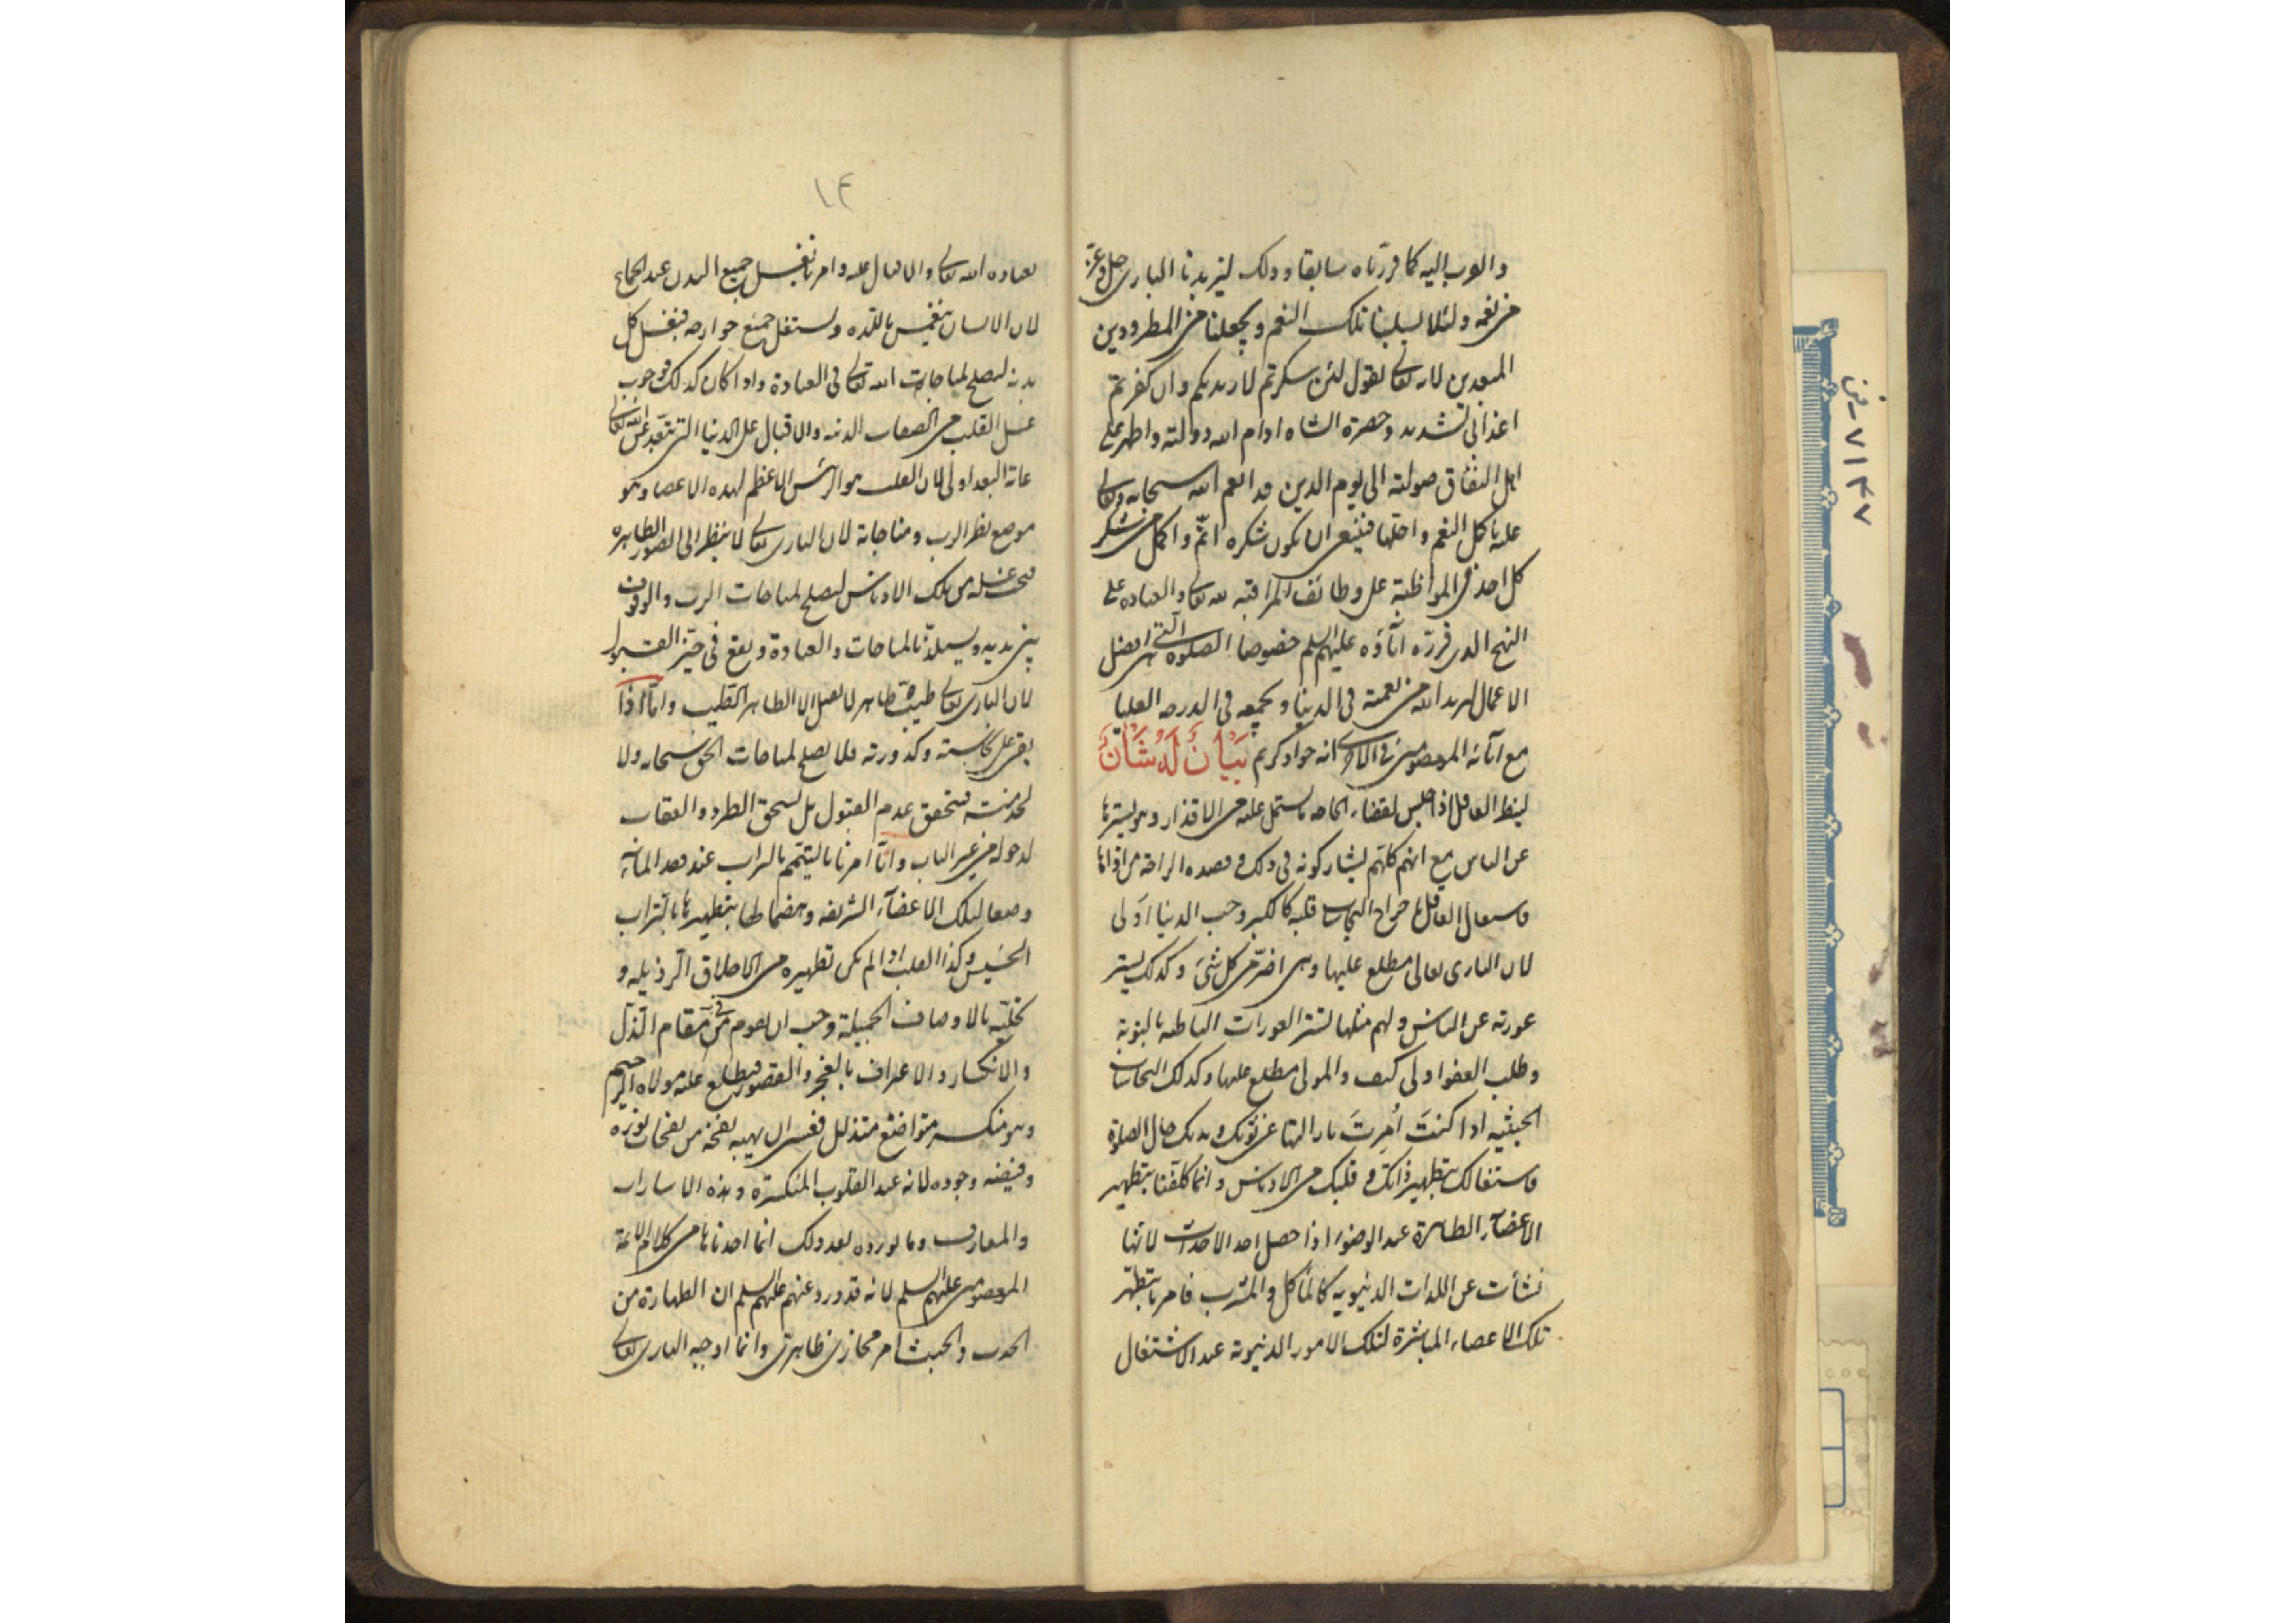 والقرب اليه كما قررناه سابقا وذلك ليزيدنا البارى جل وعز
من نعمه ولئلا يسلبنا تلك النعم ويجعلنا من المطرودين
المبعدين لانه تعالى يقول لئن شكرتم لازيدنكم وان كفرتم
ان عذابى لشديد وحضرة الشاه ادام الله دولته واظهر على
اهل النفاق صولته الى يوم الدين قد انعم الله سبحانه وتعالى
عليه باكمل النعم واجلها فينبغى ان يكون شكره اتم واكمل من شكر
كل احد فى المواظبة على وظائف المراقبه لله تعالى والعباده على
النهج الذى قرره اباؤه عليهم السلم خصوصا الصلوة التى هى افضل
الاعمال ليزيد الله من نعمته فى الدنيا ويجمعه فى الدرجه العليا
مع آبائه المعصومين فى الاخرى انه جواد كريم بَيَانٌ لَهُ شَأنٌ
لينظر العاقل اذا جلس لقضاء الحاجه ما يشتمل عليه من الاقذار وهو يسترها
عن الناس مع انهم كلهم يشاركونه فى ذلك وقصده الراحة من اذاها
فاشتغال العاقل باخراج النجاسات قلبه كالكبر وحب الدنيا اولى
لان البارى تعالى مطلع عليها وهى اضر من كل شئ وكذلك يستر
عورته عن الناس ولهم مثلها فستر العورات الباطنه بالتوبة
وطلب العفو اولى كيف والمولى مطلع عليها وكذلك النجاسات
الخبثيه اذا كنتَ اُمِرتَ بازالتها عن ثوبك وبدنك حال الصلوة
فاشتغالك بتطهير ذاتك وقلبك من الادناس وانما كلفنا بتطهير
الاعضآء الظاهرة عند الوضوء اذا حصل احد الاحداث لانها
نشأت عن اللذات الدنيويه كالمأكل والمشرب فامرنا بتطهير
تلك الاعضاء المباشرة لتلك الامور الدنيوية عند الاشتغال
١٤
بعباده الله تعالى والاقبال عليه وامرنا بغسل جميع البدن عند الجماع
لان الانسان ينغمس باللذه ويستغل جميع جوارحه فيغسل كل
بدنه ليصلح لمناجات الله تعالى فى العبادة واذا كان كذلك فوجوب
غسل القلب من الصفات الدنيه والاقبال على الدنيا التى تبعد عن الله تعالى
غاية البعد اولى لان القلب هو الرئيس الاعظم لهذه الاعضا وهو
موضع نظر الرب ومناجاته لان البارى تعالى لا ينظر الى الصور الظاهره
فيجب غسله من تلك الادناس ليصلح لمناجات الرب والوقوف
بين يديه ويستلذ بالمناجات والعبادة ويقع فى حيز القبول
لان البارى تعالى طيب طاهر لا يقبل الا الطاهر الطيب واما اذا
بقى على نجاسته وكدورته فلا يصلح لمناجات الحق سبحانه ولا
لخدمته فيتحقق عدم القبول بل يستحق الطرد والعقاب
لدخوله من غير الباب وانما امرنا بالتيمم بالتراب عند فقد الماء
وضعا لتلك الاعضآء الشريفه وهضما لها بتطهيرها بالتراب
الخسيس وكذا القلب اذا لم يمكن تطهيره من الاخلاق الرذيله و
تحليته بالاوصاف الجميلة وجب ان يقوم فى مقام الذل
والانكسار والاعتراف بالعجز والقصور فيطلع عليه مولاه الرحيم
وهو منكسر متواضع متذلل فعسى ان يهبه نفحة من نفحات نوره
وفيضه وجوده لانه عند القلوب المنكسره وهذه الاشارات
والمعارف وما نورده بعد ذلك انما اخذناها من كلام الائمة
المعصومين عليهم السلم لانه قد ورد عنهم عليهم السلم ان الطهارة من
الحدث والخبث امر مجازى ظاهرى وانما اوجبه البارى تعالى
٧١٤٧ ـ ض